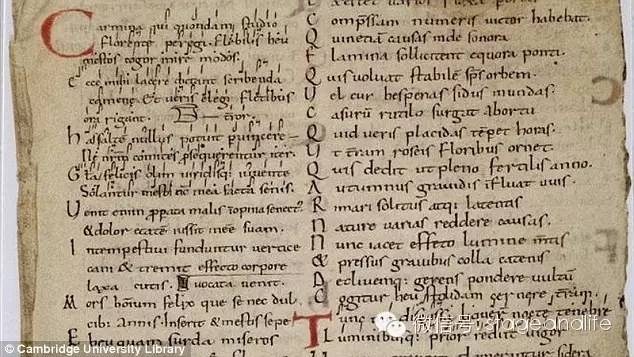 Carmina qui quondam studio
Florente peregi. Flebilis heu
mestos cogor inire modos.
Ecce mihi lacere dictant scribenda
camene. Et veris elegi fletibus
ora rigant.
has saltem nullus potuit pvincere
Ne nrm comites psequerentur iter.
Gla felicis olim viridisq; iuvente
Solantur mesti nc mea fata senis.
Venit enim ppata malis inopina senect'
& dolor etate iussit inee suam.
Intempestivi funduntur vertice
cani & tremit effecto corpore
laxa cutis. vocata venit.
Mors hominum felix que se nec dul
cib; annis. Inserit & mestis sepe
Eheu quam surda miseros
Compssam numeris victor habebat.
Quinetiam causas unde sonora
Flamina sollicitent equora ponti.
Quis volvat stabile sps orbem.
Vel cur hesperias sidus in undas.
Casurum rutilo surgat ab ortu
Quid veris placidas tempet horas.
Ut tram roseis floribus ornet.
Quis dedit ut pleno fertilis anno.
Autumnus gravidis influat uvis.
Rimari solitus atq; latentis
Nature varias reddere causas.
Nunc iacet effeto lumine mtis
& pressus gravibus colla catenis
Declivemq; gerens pondere vultu
Cogitur heu stolidam cernere tram.
Tunc me discussa liquere nocte tenebre
Luminibusq; prior rediit vigor.
微信号: stageandlife
© Cambridge University Library